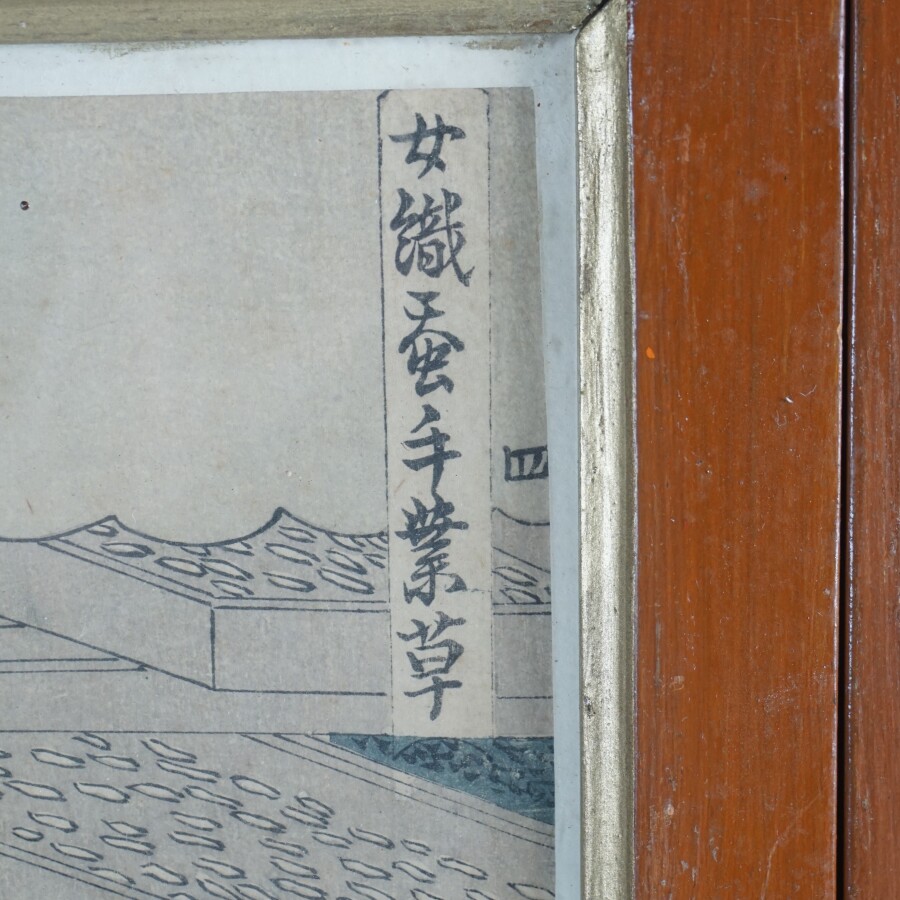 四
女織蚕手業草